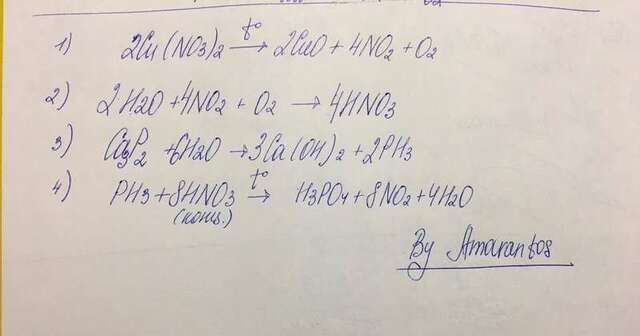 1) 2Cu(NO3)2 t° → 2CuO + 4NO2 + O2
2) 2H2O + 4NO2 + O2 → 4HNO3
3) Ca3P2 + 6H2O → 3Ca(OH)2 + 2PH3
4) PH3 + 8HNO3 t° → H3PO4 + 8NO2 + 4H2O
(конц.)
By Amarantos